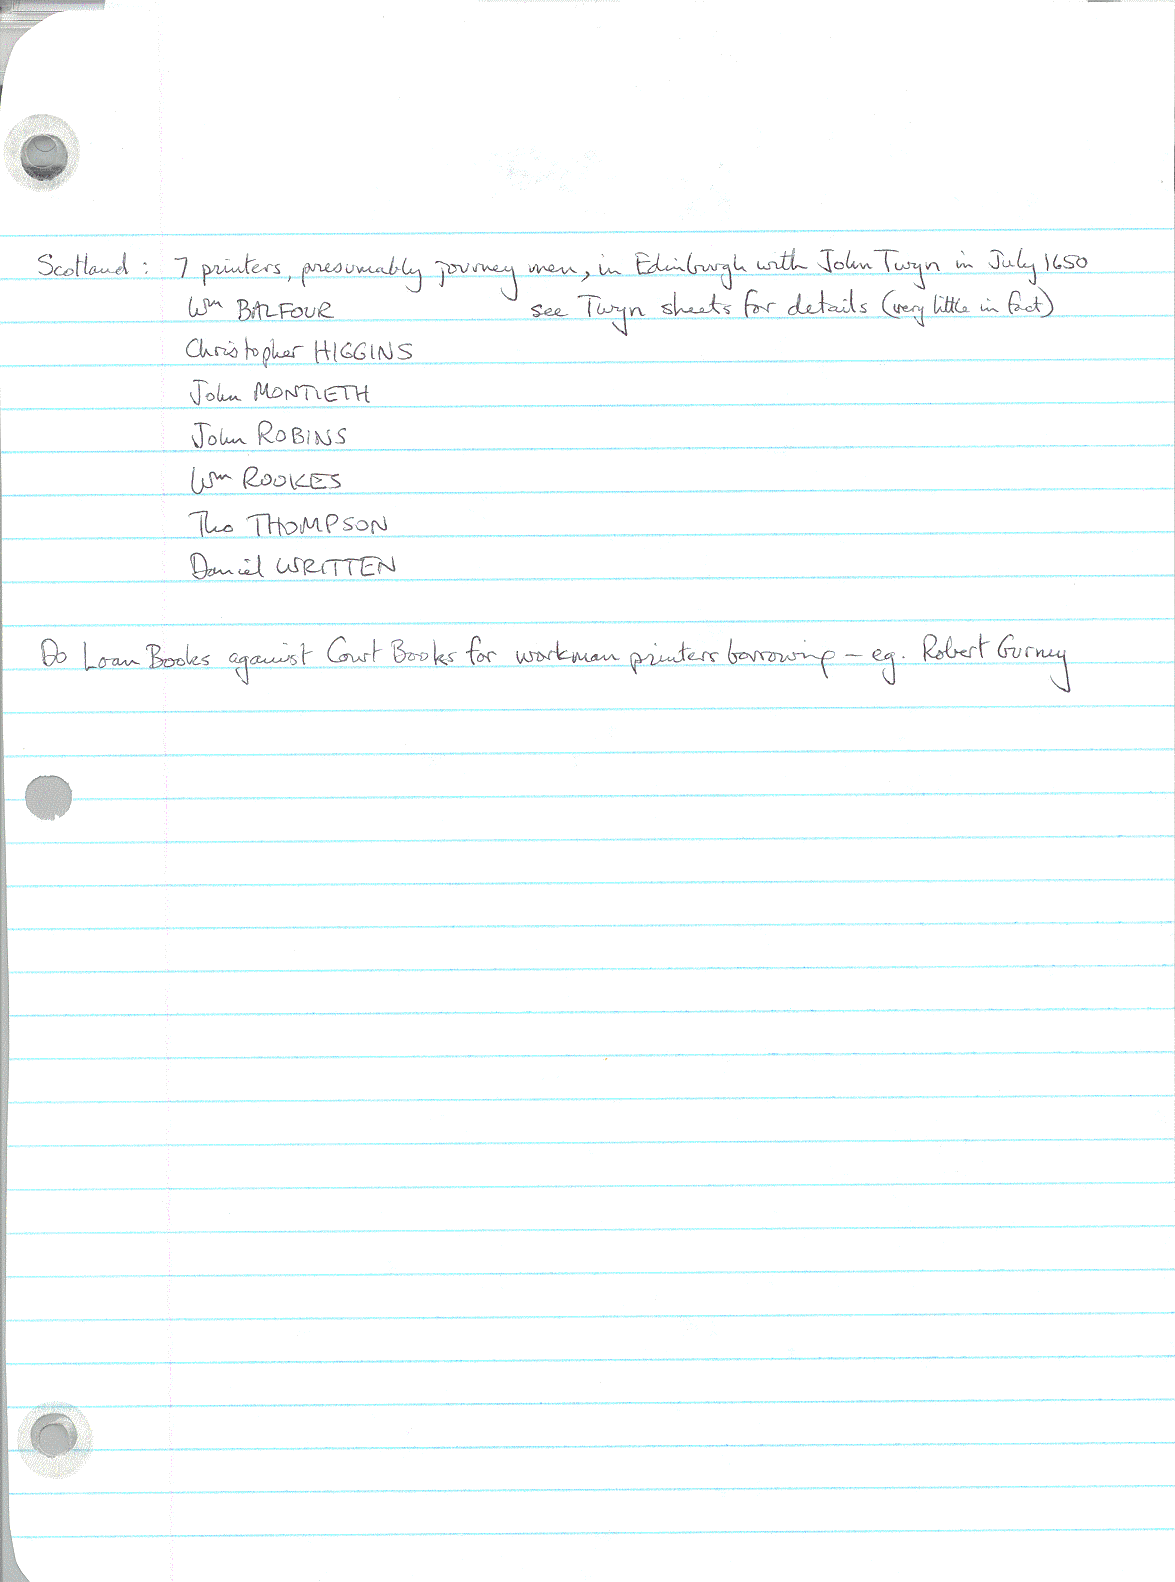 Scotland : 7 printers, presumably journey men, in Edinburgh with John Twyn in July 1650
Wm BALFOUR see Twyn sheets for details (very little in fact)
Christopher HIGGINS
John MONTIETH
John ROBINS
Wm ROOKES
Tho THOMPSON
Daniel WRITTEN
Do Loan Books against Court Books for workman printers borrowing – eg. Robert Gurney